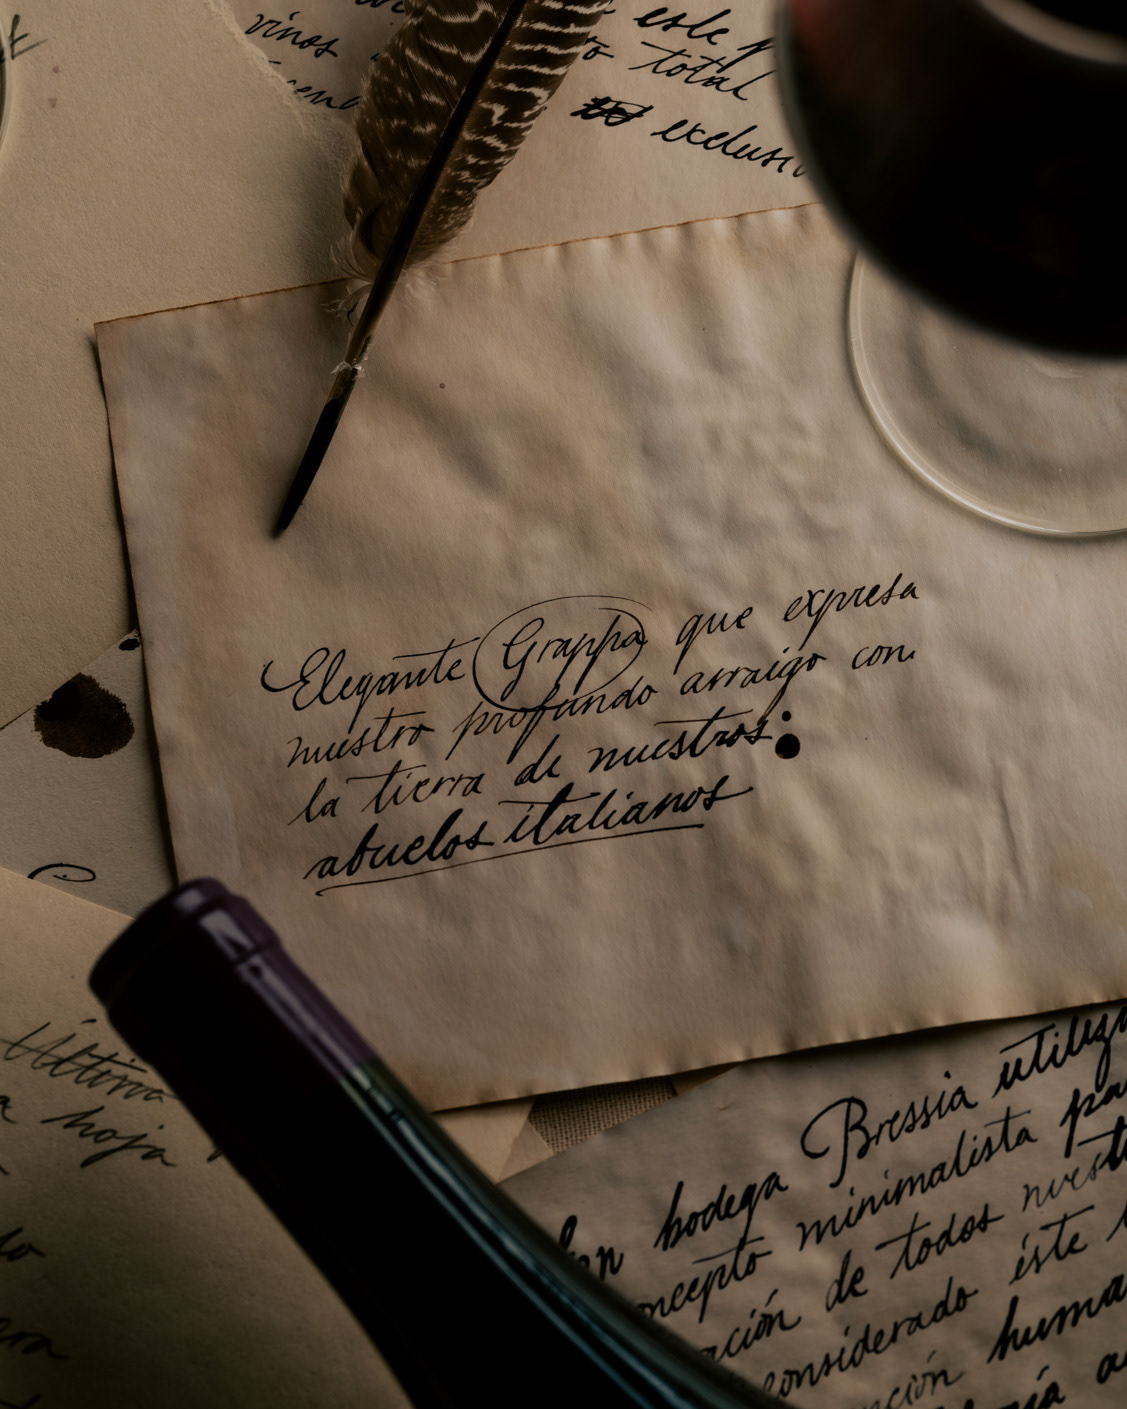 vinos
este
total
exclusi
Elegante Grappa que expresa
nuestro profundo arraigo con
la tierra de nuestros:
abuelos italianos
Última
hoja
En bodega Bressia utiliza
concepto minimalista pa
ación de todos nuest
considerado éste
nción huma